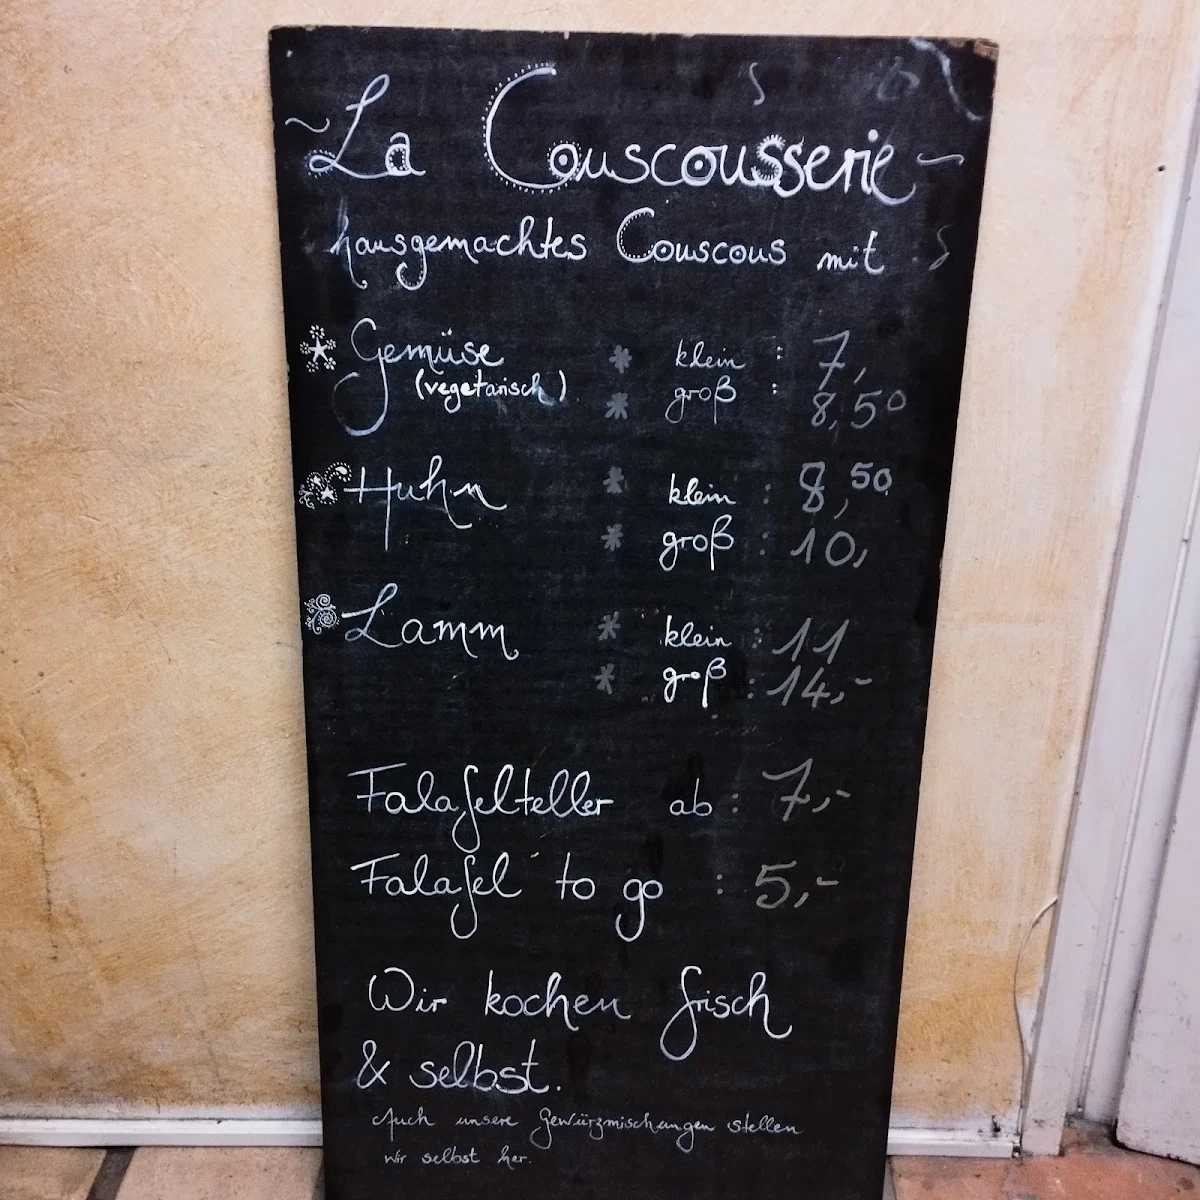 ~ La Couscousserie ~
hausgemachtes Couscous mit
Gemüse * klein : 7,
(vegetarisch) * groß : 8,50
Huhn * klein : 8,50
* groß : 10,
Lamm * klein : 11
* groß : 14,-
Falafelteller ab : 7,-
Falafel to go : 5,-
Wir kochen frisch
& selbst.
Auch unsere Gewürzmischungen stellen
wir selbst her.